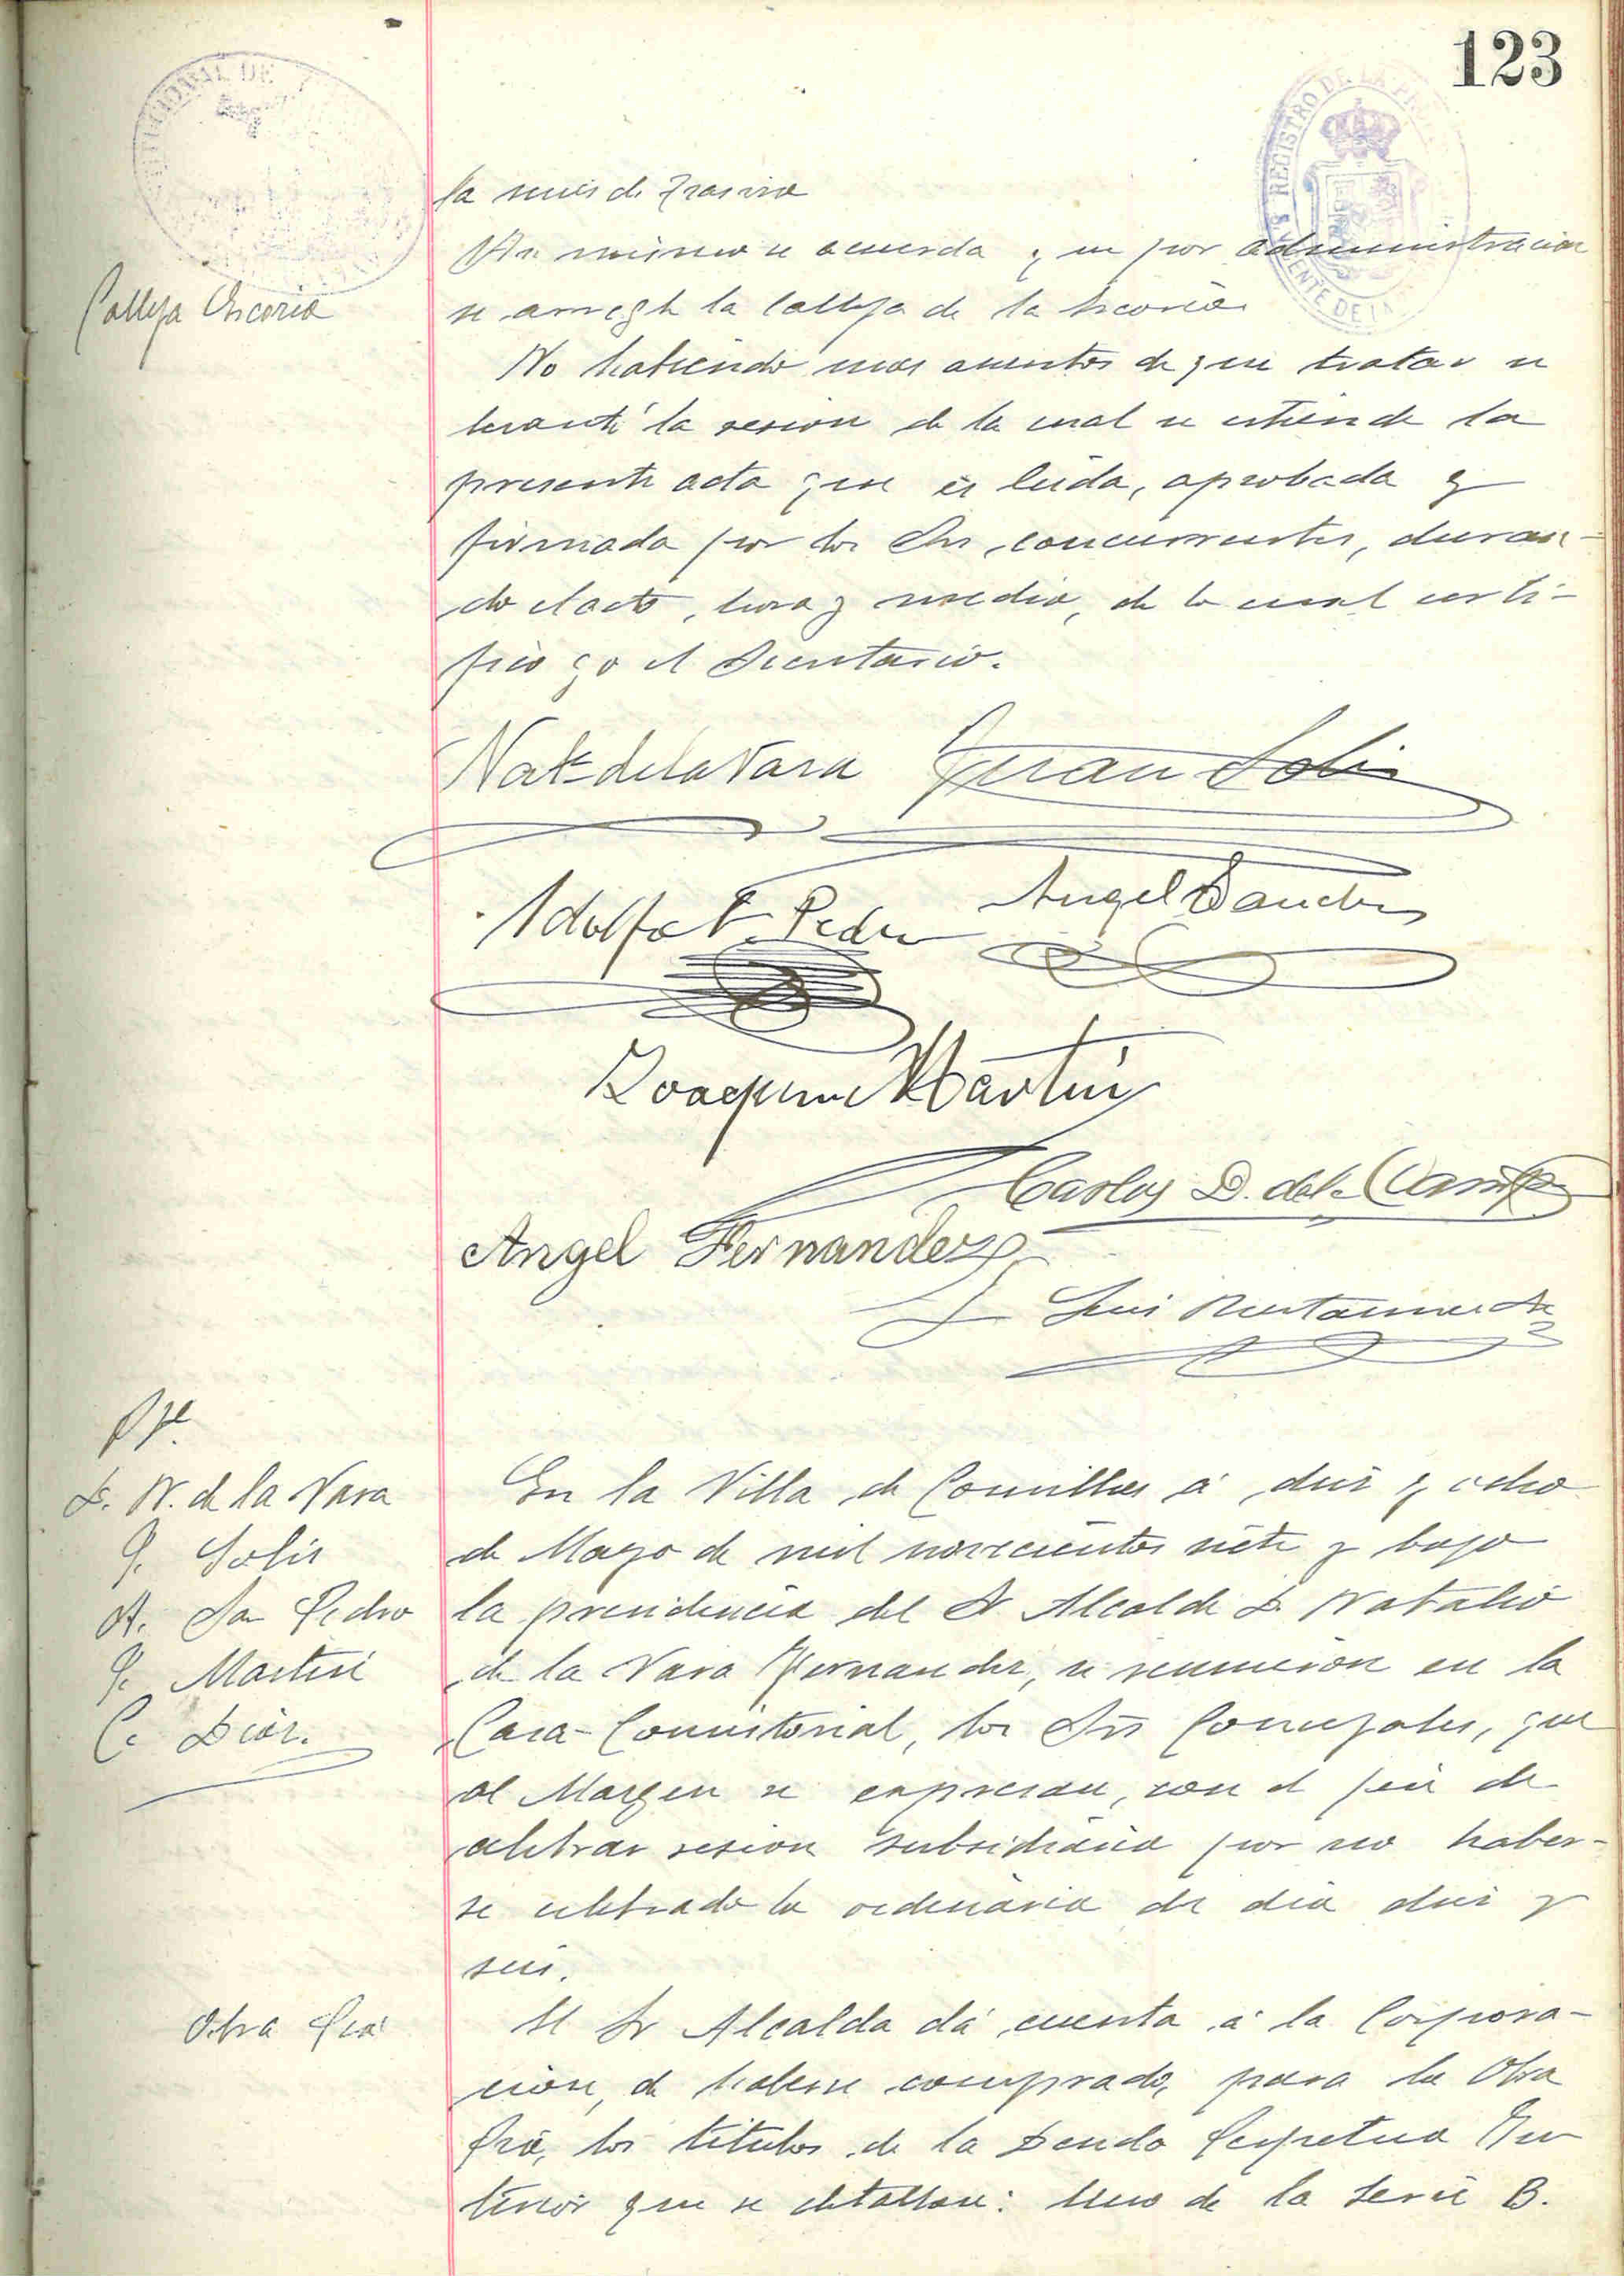 123
la mies de
Asi mismo se acuerda que por administracion
Calleja
se arregle la Calleja de la
No habiendo mas asuntos de que tratar se
levantó la sesion de la cual se estiende la
presente acta que es leida, aprobada y
firmada por los Srs concurrentes, duran-
do el acto, hora y media, de lo cual certi-
fico yo el Secretario.
Nat. de la Vara Juan Solis
Adolfo S. Pedro Angel Sanchez
Joaquin Martin
Carlos D. de la Campa
Angel Fernandez
Luis Bustamante
Pte
D. N. de la Vara
J. Solis
A. San Pedro
J. Martin
C. Diaz.
En la Villa de Comillas á diez y ocho
de Mayo de mil novecientos siete y bajo
la presidencia del Sr Alcalde D. Natalio
de la Vara Fernandez, se reunieron en la
Casa-Consistorial, los Srs Concejales, que
al Margen se expresan, con el fin de
celebrar sesion subsidiaria por no haber-
se celebrado la ordinaria de dia diez y
seis.
Obra Pia
El Sr Alcalda dá cuenta á la Corpora-
cion, de haberse comprado, para la Obra
Pia, los titulos de la Deuda Perpetua In
terior que se detallan: Uno de la Serie B.